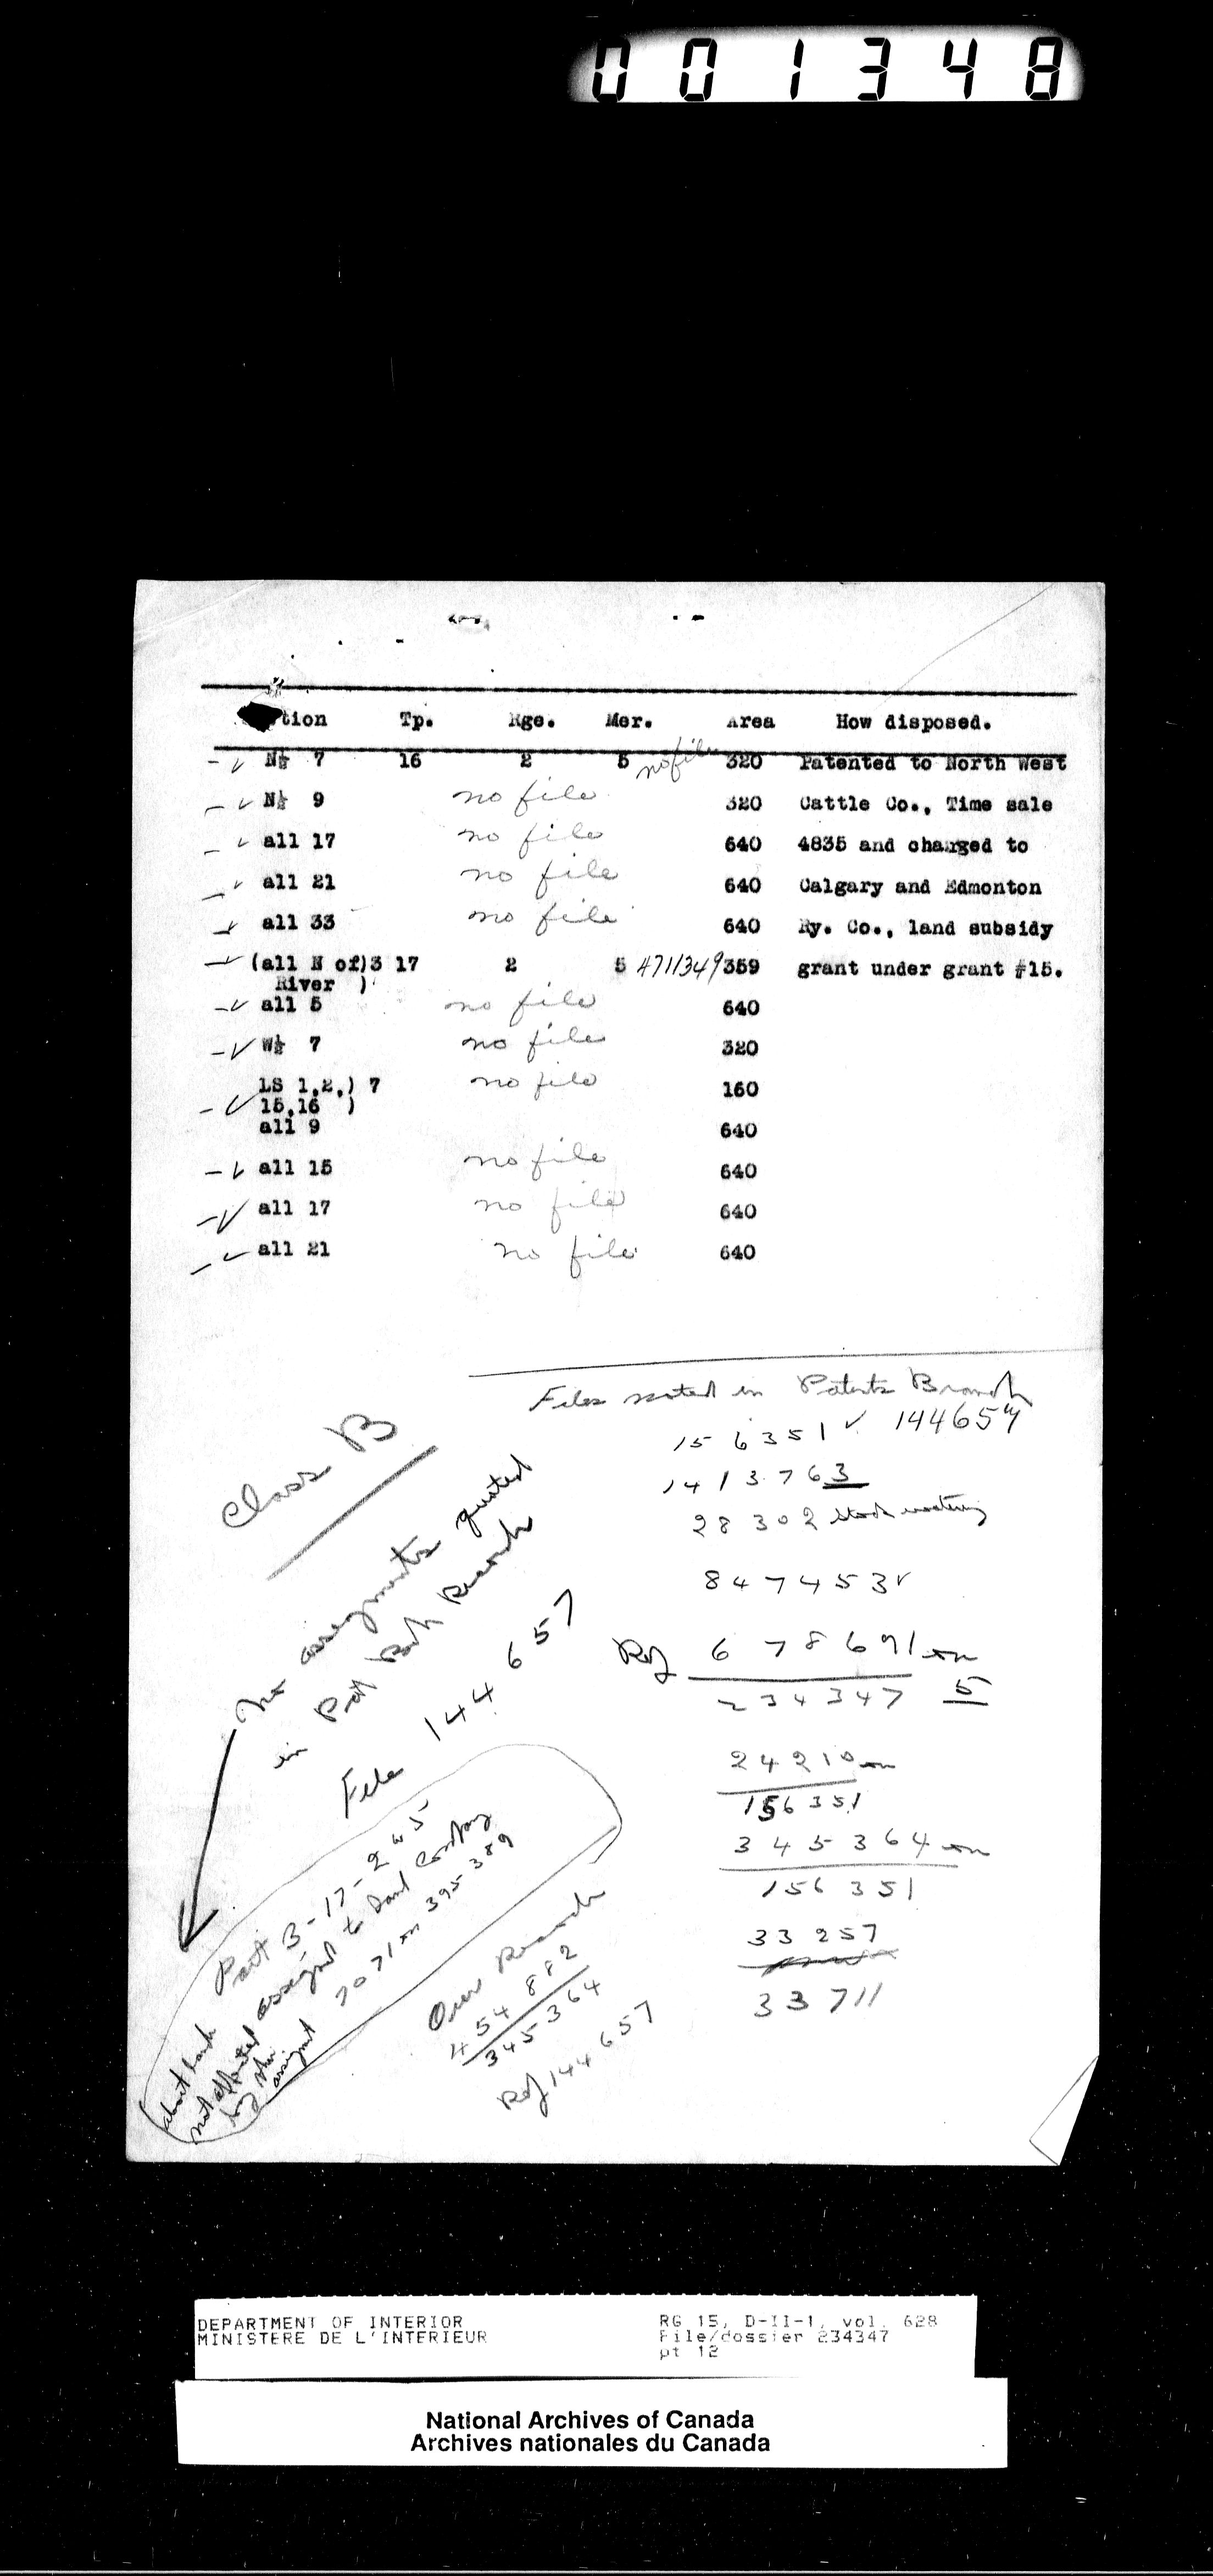 001348
tion Tp. Rge. Mer. Area How disposed.
N½ 7 16 2 5 no file 320 Patented to North West
N½ 9 no file 320 Cattle Co., Time sale
all 17 no file 640 4835 and charged to
all 21 no file 640 Calgary and Edmonton
all 33 no file 640 Ry. Co., land subsidy
(all N of)3 17 2 5 4711349 359 grant under grant #15.
River )
all 5 no file 640
W½ 7 no file 320
LS 1,2,) 7 no file 160
15,16 )
all 9 640
all 15 no file 640
all 17 no file 640
all 21 no file 640
Files noted in Patents Branch
156351 ✓ 144657
1413763
28302 stock watering
847453 ✓
Ref 678691 on
234347 5
24210 on
156351
345364 on
156351
33257
33711
Class B
No assignments quoted
in Pat Bch Records
File 144657
Part 3-17-2 w 5
assigned to Land Company
7071 on 395389
about land
not affected
by
assignt
Our Records
454882
345364
Ref 144657
DEPARTMENT OF INTERIOR
MINISTERE DE L'INTERIEUR
RG 15, D-II-1, vol. 628
File/dossier 234347
pt 12
National Archives of Canada
Archives nationales du Canada